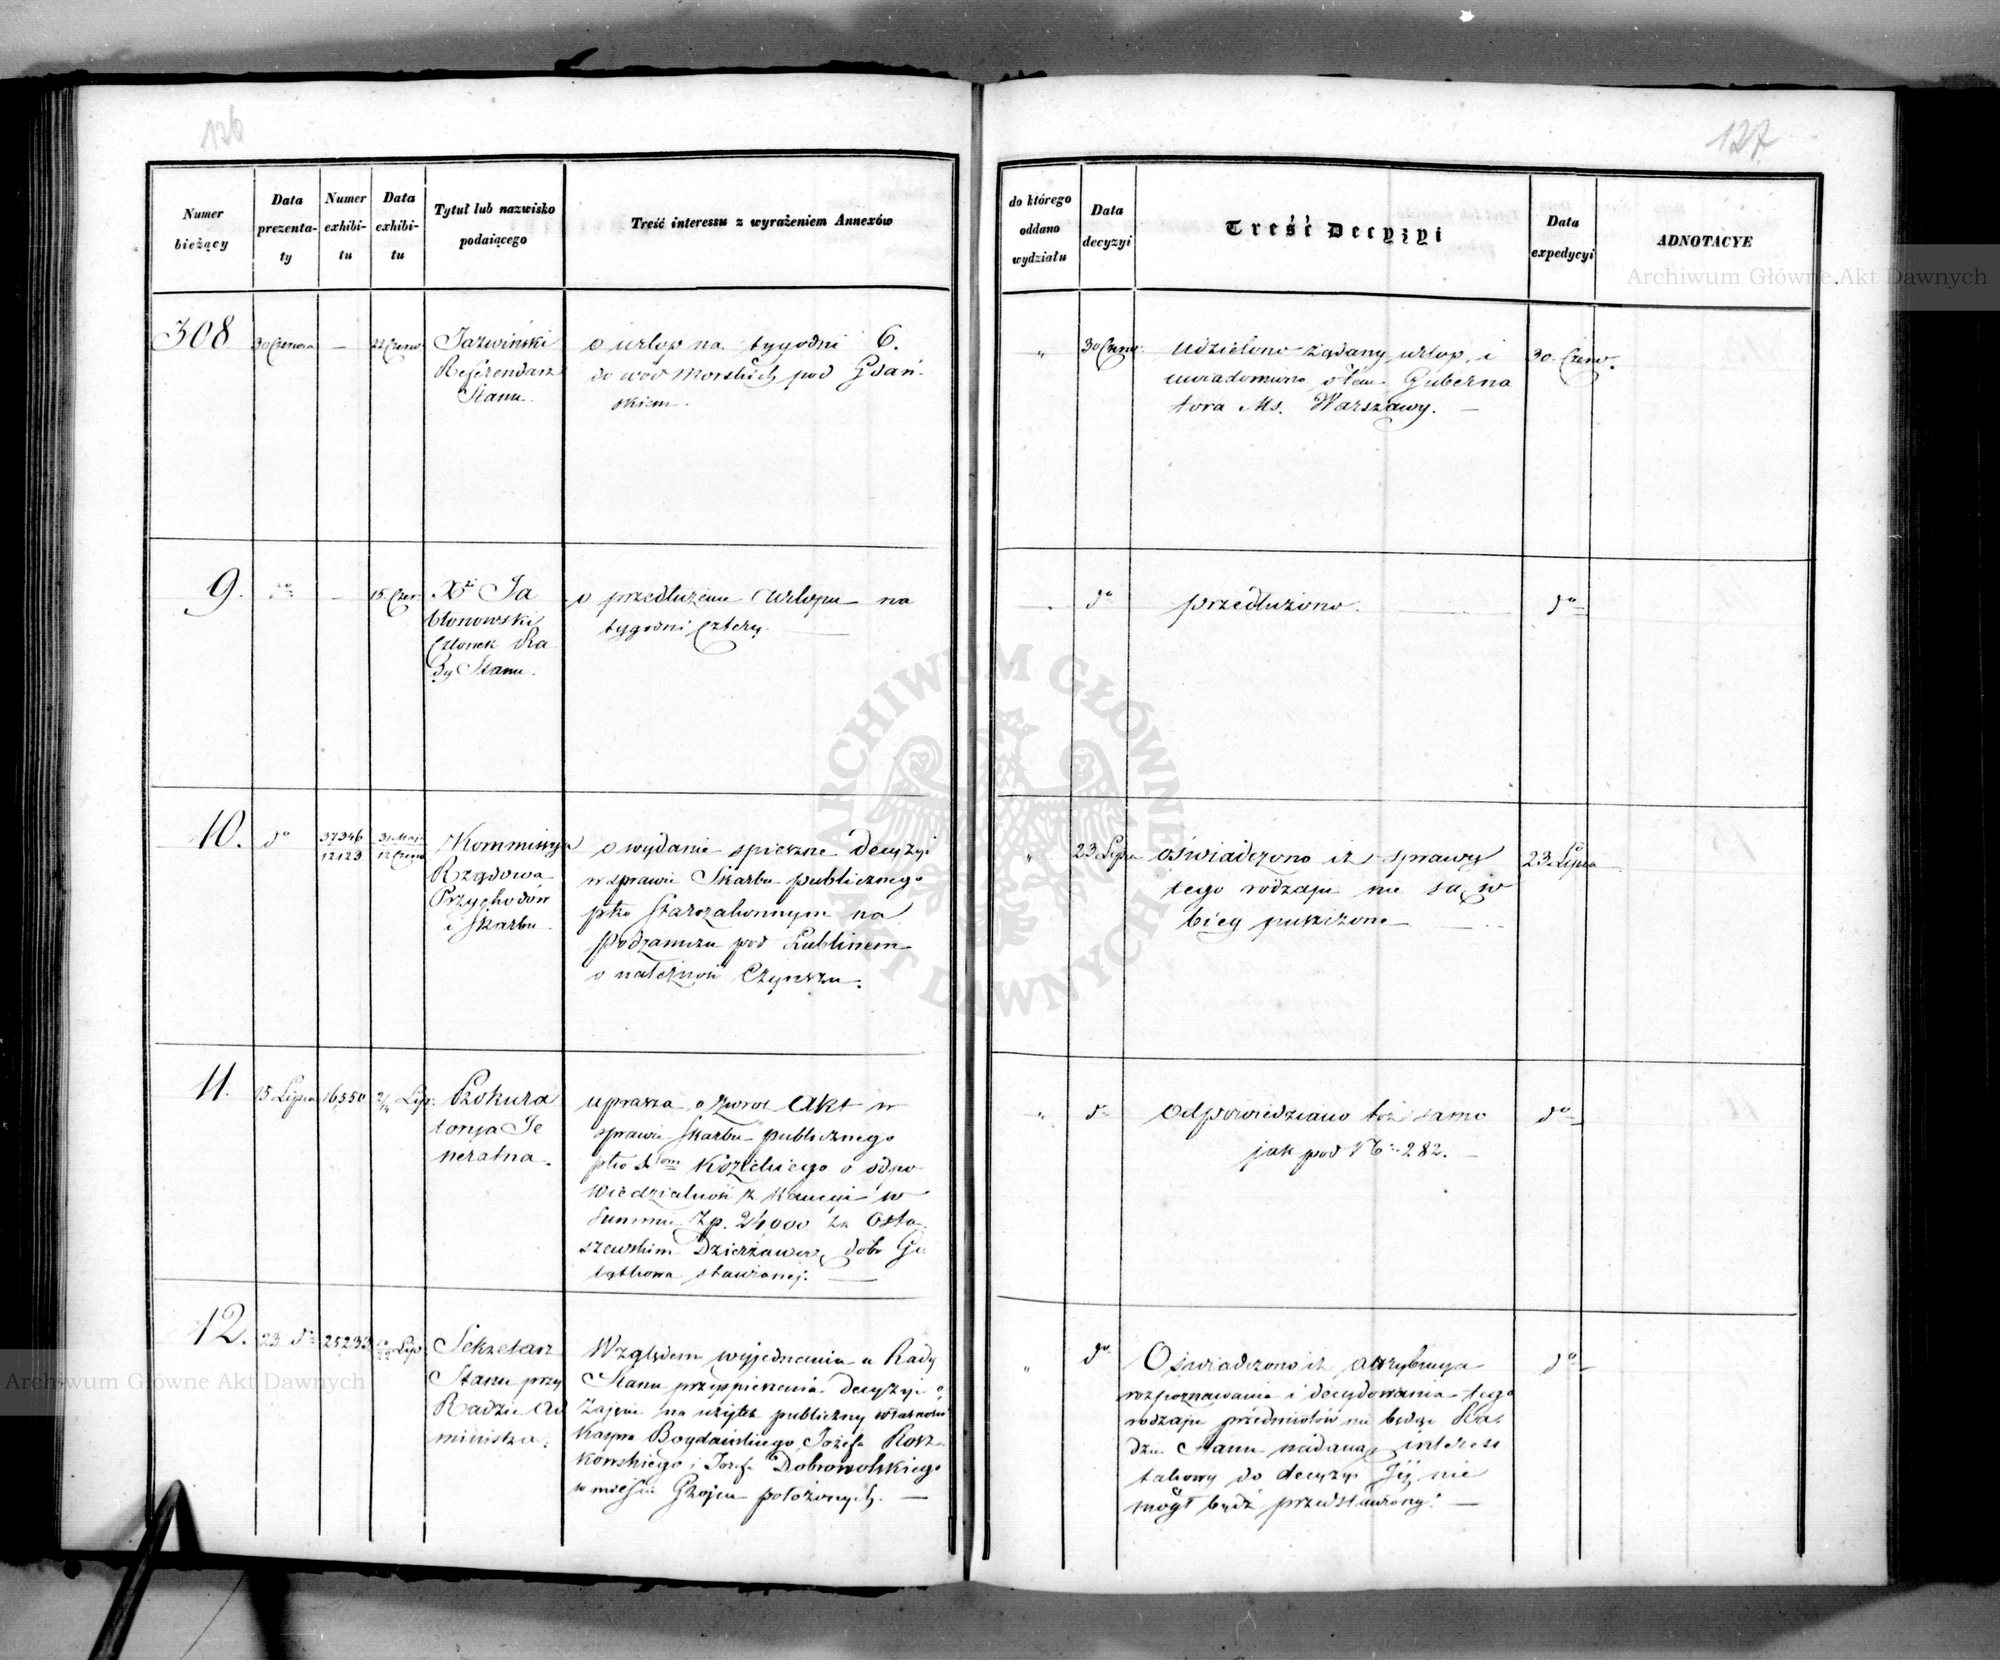 126
Numer
bieżący
Data
prezenta-
ty
Numer
exhibi-
tu
Data
exhibi-
tu
Tytuł lub nazwisko
podaiącego
Treść interessu z wyrażeniem Annexów
308
30 Czerwca
—
22 Czerw.
Jaźwiński
Referendarz
Stanu.
o urlop na tygodni 6.
do wód morskich pod Gdań-
skiem.
9.
do
—
15. Czer.
Xże Ja
błonowski
Członek Ra
dy Stanu.
o przedłużenie urlopu na
tygodni cztery.
10.
do
37346
12123
31 Maja
12 Czerw.
Kommissya
Rządowa
Przychodów
i Skarbu
o wydanie spieszne decyzyi
w sprawie Skarbu publicznego
pko Starozakonnym na
Podzamczu pod Lublinem
o należność Czynszu.
11.
15 Lipca
16,550
2/14 Lip.
Prokura
torja Je
neralna.
uprasza o zwrot Akt w
sprawie Skarbu publicznego
pko Kozickiego o odpo
wiedzialność z kaucyi w
Summie Zp. 24000 za Osta-
szewskim Dzierżawcę dóbr
stawionej.
12.
23 do
25233
10/22 Lip.
Sekretarz
Stanu przy
Radzie Ad
ministra.
Względem wyjednania u Rady
Stanu przyspieszenia decyzyi o
zajęcie na użytek publiczny własności
Kaspra Bogdańskiego, Józefa Rosz
kowskiego i Józefa Dobrowolskiego
w mieście Grójcu położonych. —
127
do którego
oddano
wydziału
Data
decyzyi
Treść Decyzyi
Data
expedycyi
ADNOTACYE
"
30 Czerw.
Udzielono żądany urlop, i
uwiadomiono o tem Guberna
tora Ms. Warszawy. —
30. Czerw.
do
przedłużono.
do
"
23 Lipca
oświadczono iż sprawy
tego rodzaju nie są w
bieg puszczone
23 Lipca
"
do
Odpowiedziano toż samo
jak pod No 282. —
do
"
do
Oświadczono iż attrybucya
rozpoznawania i decydowania tego
rodzaju przedmiotów nie będąc Ra
dzie Stanu nadaną, interess
takowy do decyzyi Jéj nie
mógł bydź przedstawiony. —
do
Archiwum Główne Akt Dawnych
ARCHIWUM GŁÓWNE AKT DAWNYCH
Archiwum Główne Akt Dawnych